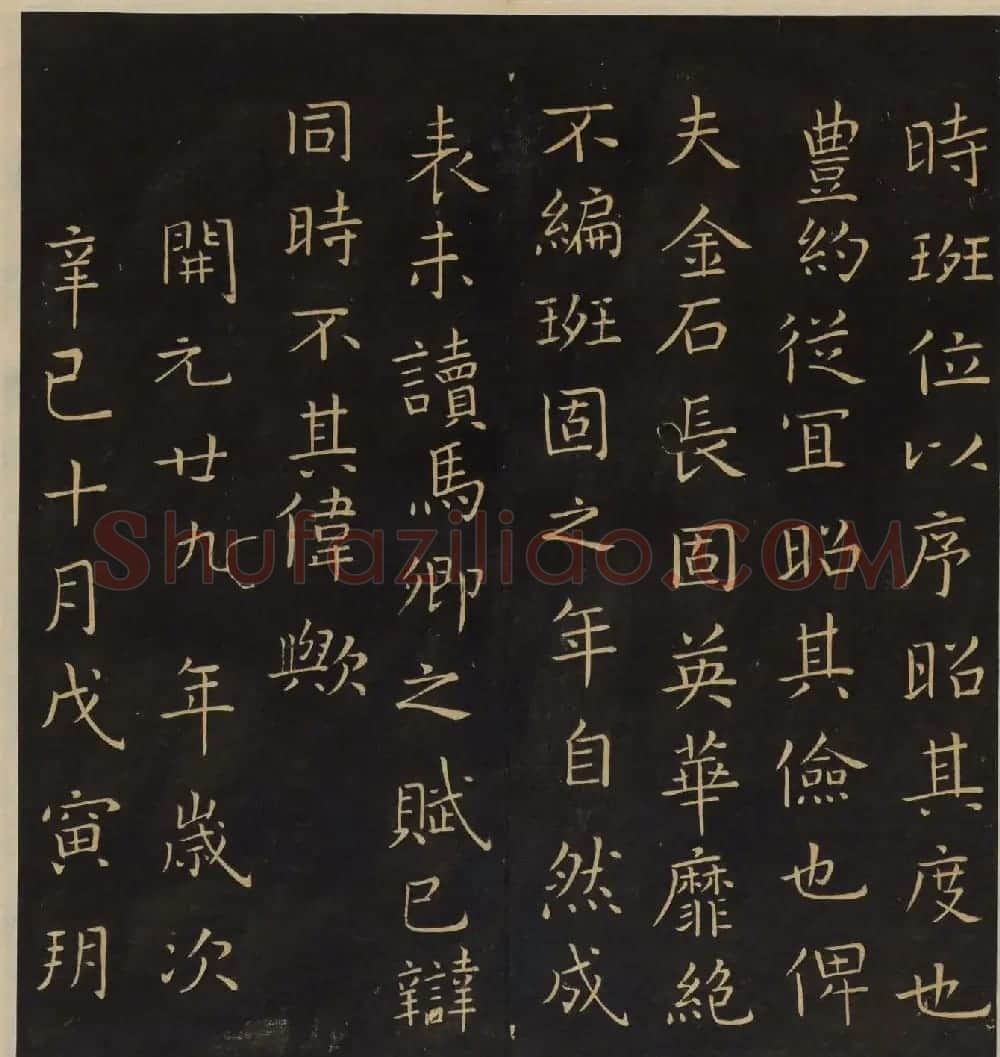 時班位以序昭其度也
豊約従冝昭其儉也俾
夫金石長固英華靡絕
不編班固之年自然成
表未讀馬卿之賦已辯
同時不其偉歟
開元廿九年歲次
辛巳十月戊寅玥
Shufaziliao.COM